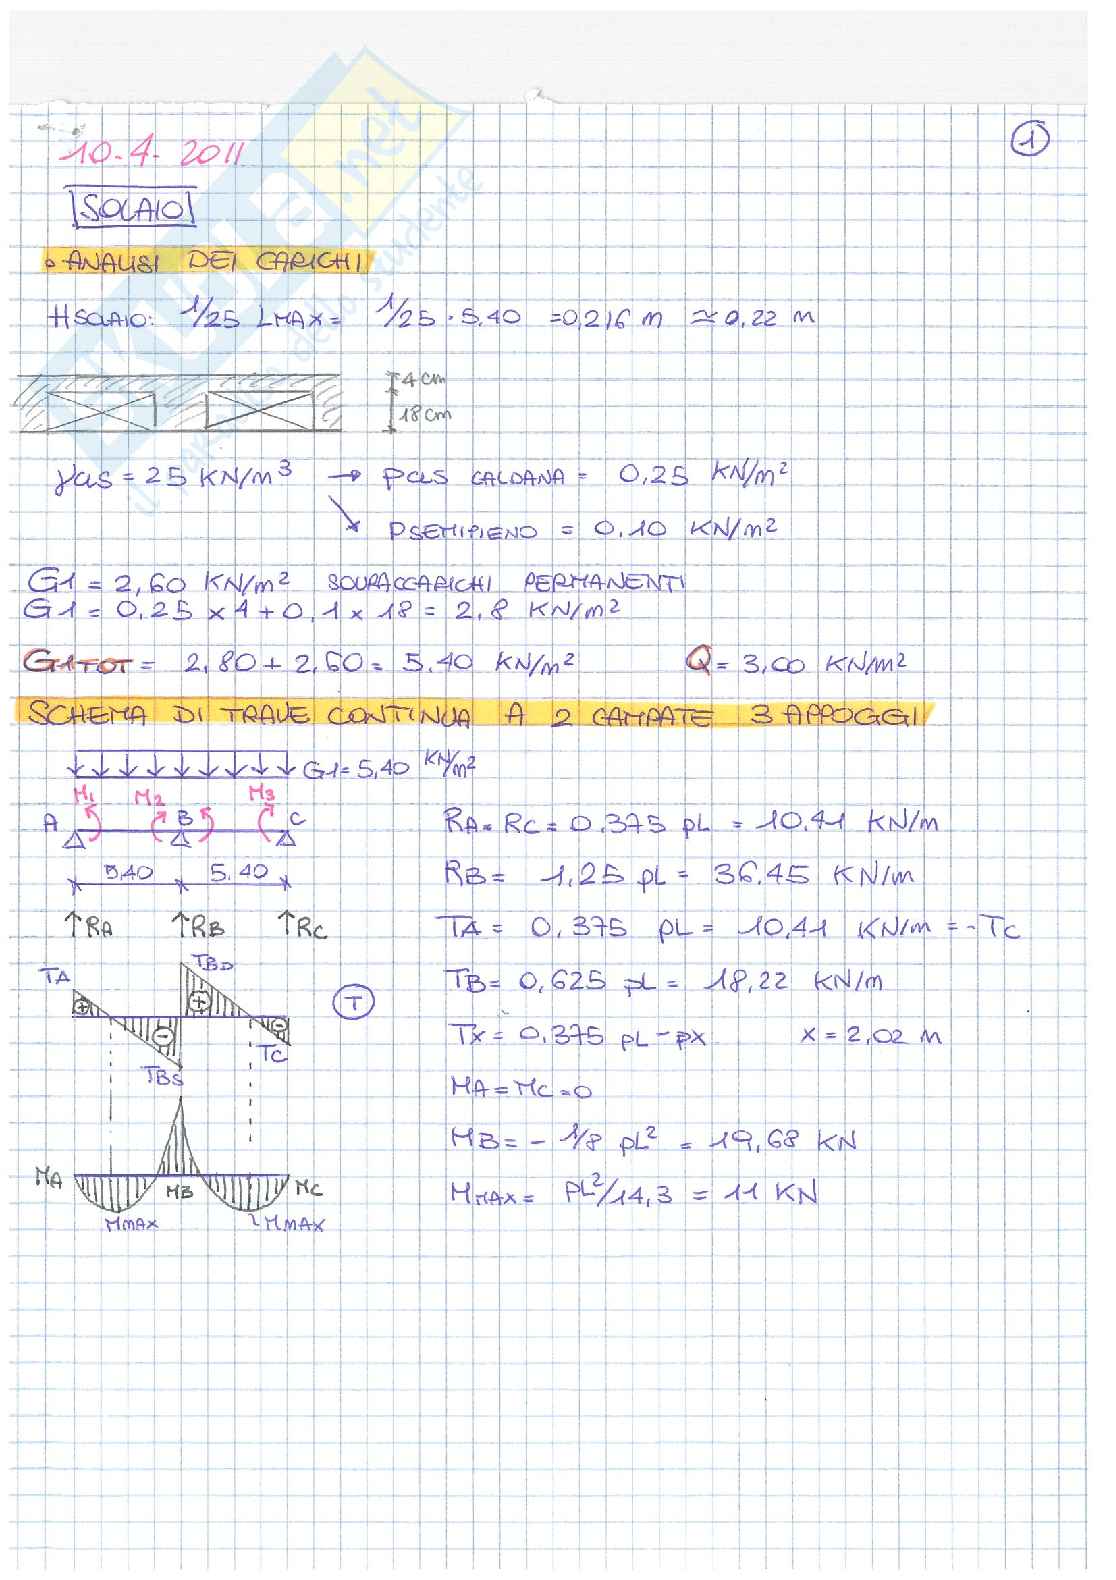 1
10-4-2011
SOLAIO
• ANALISI DEI CARICHI
HSOLAIO: 1/25 LMAX = 1/25 · 5,40 = 0,216 m ≃ 0,22 m
4 cm
18 cm
γcls = 25 KN/m³ → pcls CALDANA = 0,25 KN/m²
↘ PSEMIPIENO = 0,10 KN/m²
G1 = 2,60 KN/m² SOVRACCARICHI PERMANENTI
G1 = 0,25 x 4 + 0,1 x 18 = 2,8 KN/m²
G1TOT = 2,80 + 2,60 = 5,40 KN/m² Q = 3,00 KN/m²
SCHEMA DI TRAVE CONTINUA A 2 CAMPATE 3 APPOGGI
G1 = 5,40 KN/m²
M1 M2 M3
A B C
5,40 5,40
↑RA ↑RB ↑RC
RA = RC = 0,375 pL = 10,41 KN/m
RB = 1,25 pL = 36,45 KN/m
TA = 0,375 pL = 10,41 KN/m = - TC
TB = 0,625 pL = 18,22 KN/m
Tx = 0,375 pL - px x = 2,02 m
MA = MC = 0
MB = - 1/8 pL² = 19,68 KN
MMAX = PL²/14,3 = 11 KN
TA TBD
+ - + -
T
TBS TC
MA MB MC
MMAX MMAX
SKUOLA.net
il paradiso dello studente